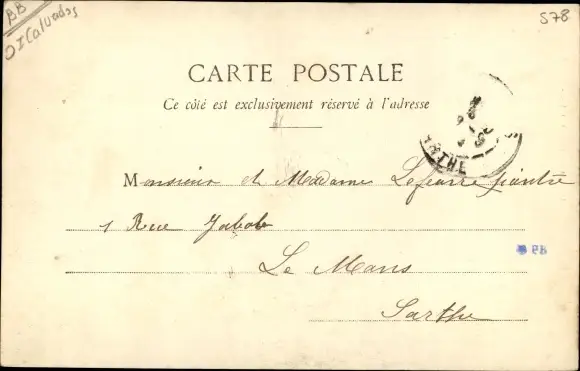 BB
OI Calvados
578
CARTE POSTALE
Ce côté est exclusivement réservé à l'adresse
RTHE
Monsieur et Madame
1 Rue
Le Mans
PB
Sarthe